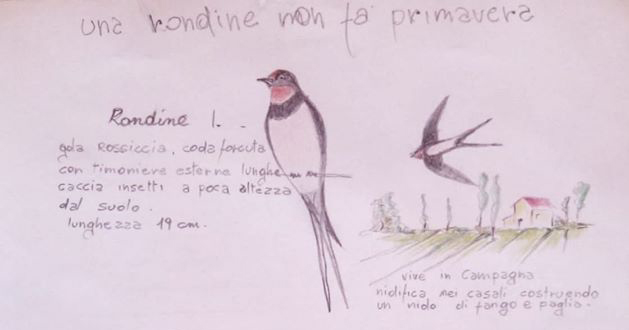 una rondine non fa primavera
Rondine 1.
gola rossiccia, coda forcuta
con timoniere esterne lunghe
caccia insetti a poca altezza
dal suolo.
lunghezza 19 cm.
vive in campagna
nidifica nei casali costruendo
un nido di fango e paglia.